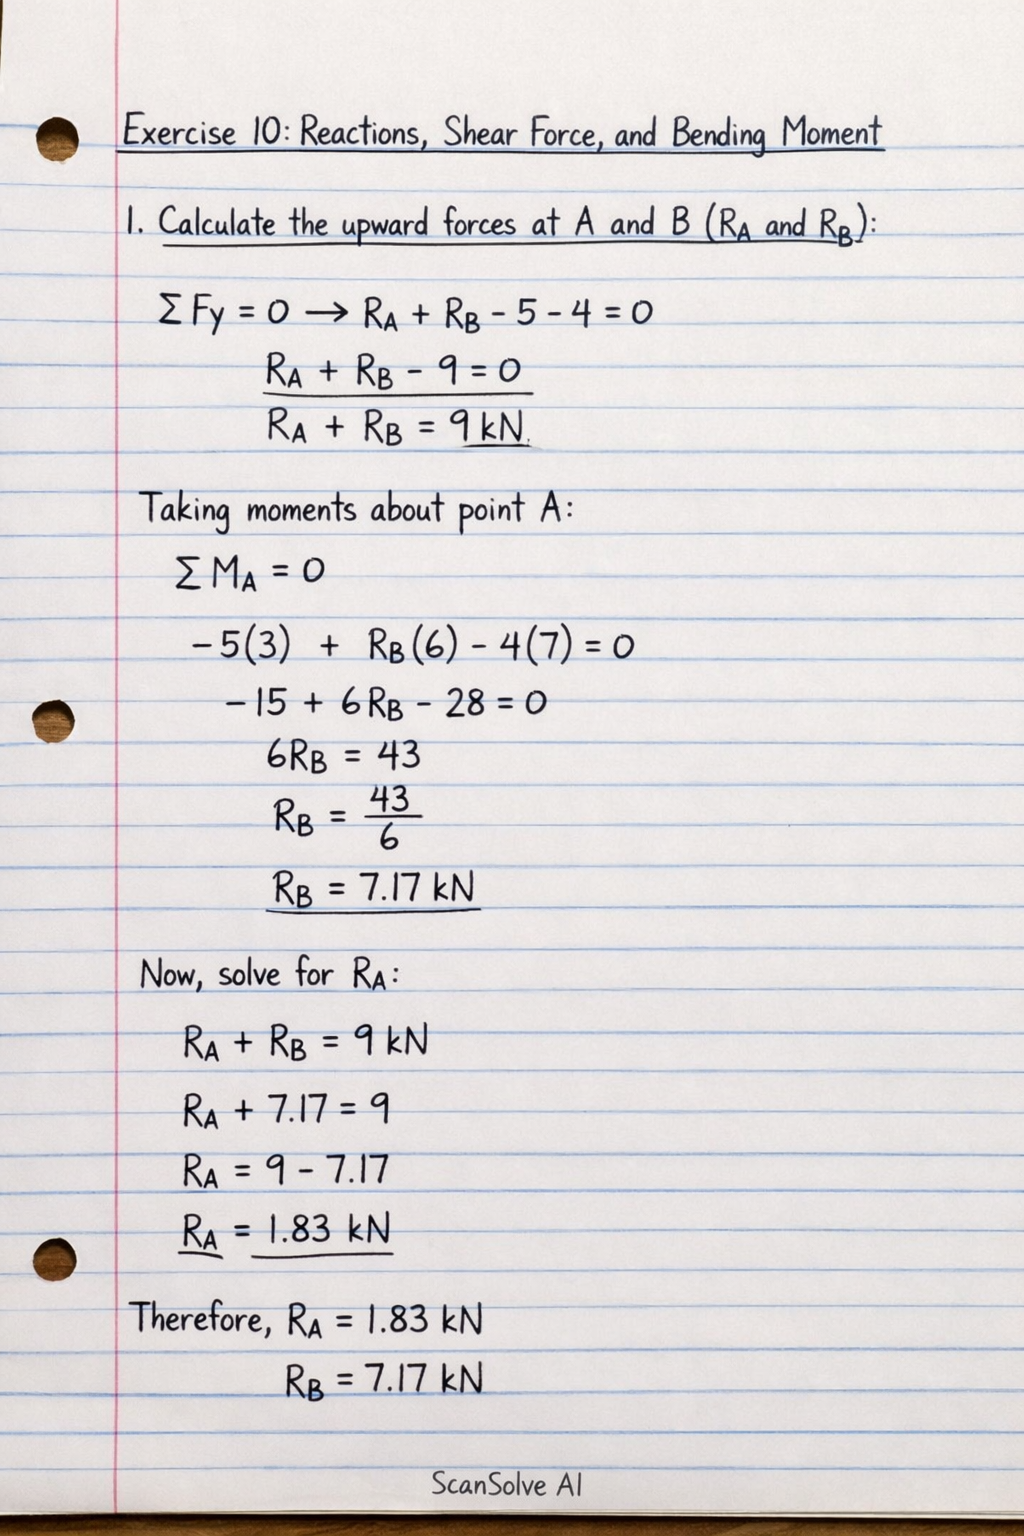 Exercise 10: Reactions, Shear Force, and Bending Moment
1. Calculate the upward forces at A and B (RA and RB):
ΣFy = 0 → RA + RB - 5 - 4 = 0
RA + RB - 9 = 0
RA + RB = 9 kN.
Taking moments about point A:
ΣMA = 0
-5(3) + RB(6) - 4(7) = 0
-15 + 6RB - 28 = 0
6RB = 43
RB = 43/6
RB = 7.17 kN
Now, solve for RA:
RA + RB = 9 kN
RA + 7.17 = 9
RA = 9 - 7.17
RA = 1.83 kN
Therefore, RA = 1.83 kN
RB = 7.17 kN
ScanSolve AI